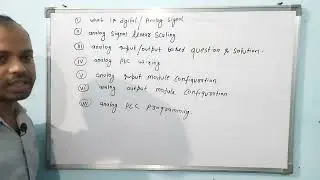 (I) what is digital / Analog signal
(II) analog signal linear scaling
(III) analog input/output based question & solution.
(IV) analog PLC wiring
(V) analog input module configuration
(VI) analog output module configuration
(VII) analog PLC programming.